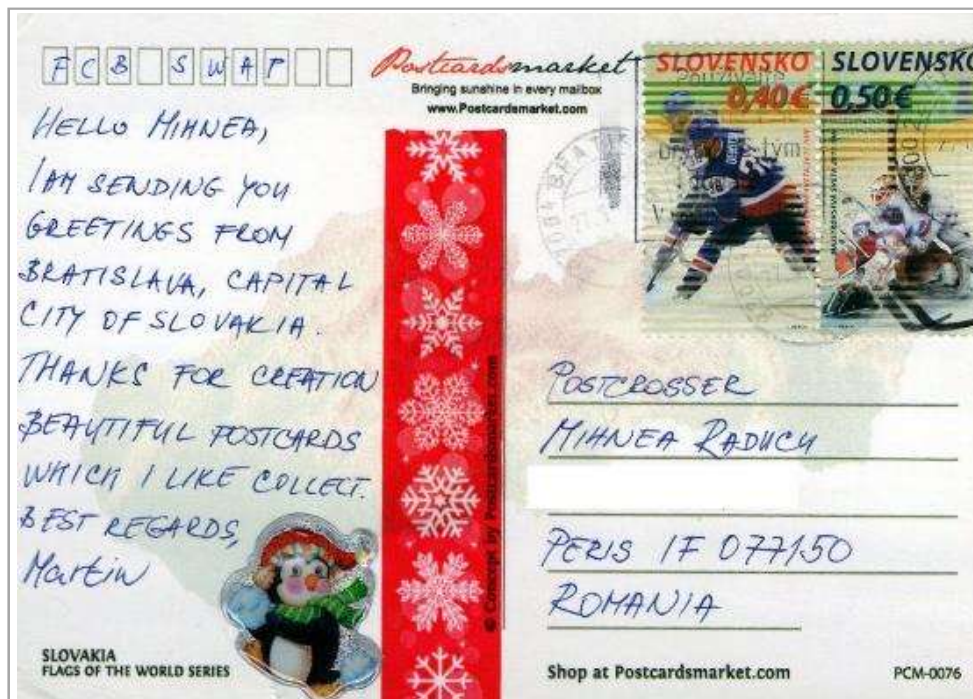 FCB SWAP
Postcardsmarket
Bringing sunshine in every mailbox
www.Postcardsmarket.com
SLOVENSKO
0,40€
SLOVENSKO
0,50€
HELLO MIHNEA,
I AM SENDING YOU
GREETINGS FROM
BRATISLAVA, CAPITAL
CITY OF SLOVAKIA.
THANKS FOR CREATION
BEAUTIFUL POSTCARDS
WHICH I LIKE COLLECT.
BEST REGARDS,
Martin
© Concept by Postcardsmarket.com
POSTCROSSER
MIHNEA RADUCU
PERIS IF 077150
ROMANIA
SLOVAKIA
FLAGS OF THE WORLD SERIES
Shop at Postcardsmarket.com
PCM-0076